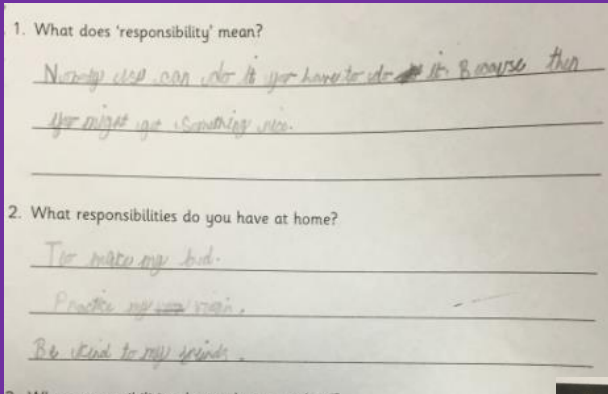 1. What does 'responsibility' mean?
can do it you have to do it. Because then
You might get something nice.
2. What responsibilities do you have at home?
To make my bed.
Practice my
Be kind to my friends.